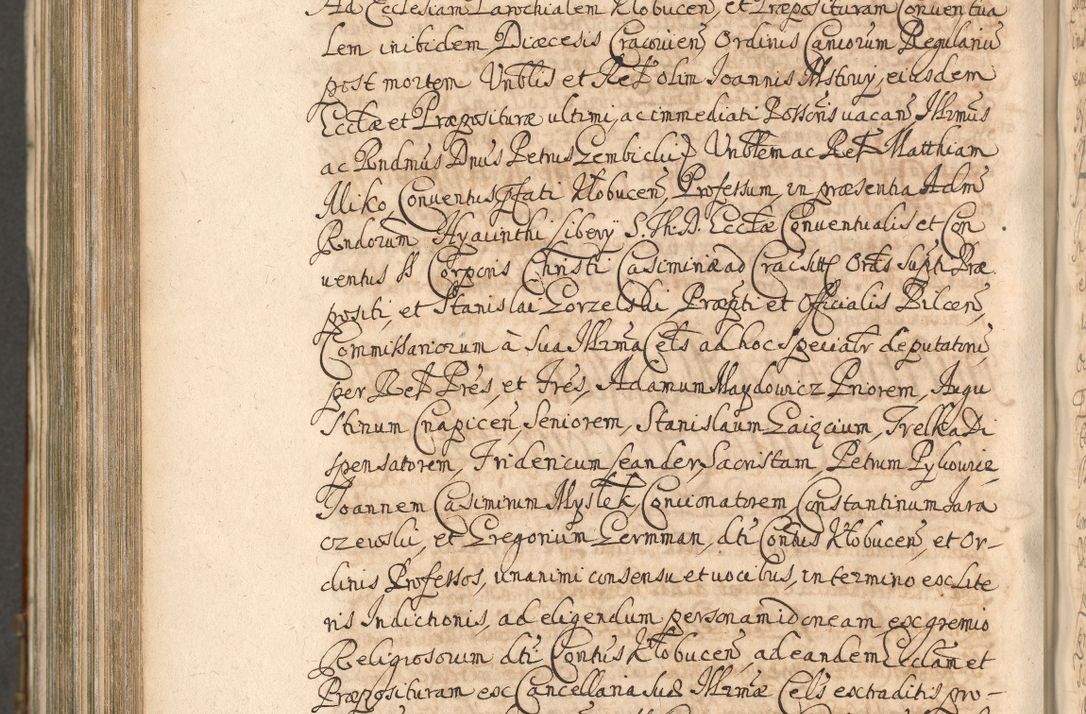 Ad Ecclesiam Parochialem Kłobucen̄, et Præposituram Conventua
lem inibidem Diæcesis Cracovien̄ Ordinis Can̄corum Regulariū
post mortem Vnblis et Rel̄ olim Joannis Mstowy, eiusdem
Ecclæ et Præposituræ ultimi, ac immediati Possōris vacan̄, Illr̄mus
ac Rndmūs Dnūs Petrus Gembicki Vnblēm ac Rel̄ Matthiam
Miko, Conventus pfati Kłobucen̄, Professum, in præsentia Adm̄
Rndorūm Hyacinthi Liberÿ S. Th. D. Ecclæ Conventualis et Con
ventus SS Corporis Christi Casimiriæ ad Crac. sitt̄ Ord̄s supti Præ
positi, et Stanislai Gorzelski Præpti et Officialis Pilcen̄,
Commissariorum à Sua Illr̄ma Cels ad hoc specialr̄ deputatorū,
per Rel̄ Pr̄es, et Fr̄es, Adamum Maydowicz Priorem, Augu
stinum Cnapicen̄, Seniorem, Stanislaum Gaigcium, Frelka Di
spensatorem, Fridericum Leander, Sacristam, Petrum Pykowic,
Joannem Casimirum Mysłek, Concionatorem, Constantinum Jara
czewski, et Gregorium Germman, dti Contūs Kłobucen̄, et Or-
dinis Professos, unanimi consensu et vocibus, in termino ex Lite
ris Indictionis, ad eligendum personam idoneam, ex gremio
Religiosorum dti Contūs Kłobucen̄, ad eandem Ecclām et
Præposituram ex Cancellaria Suæ Illr̄mæ Cels extraditis pro-